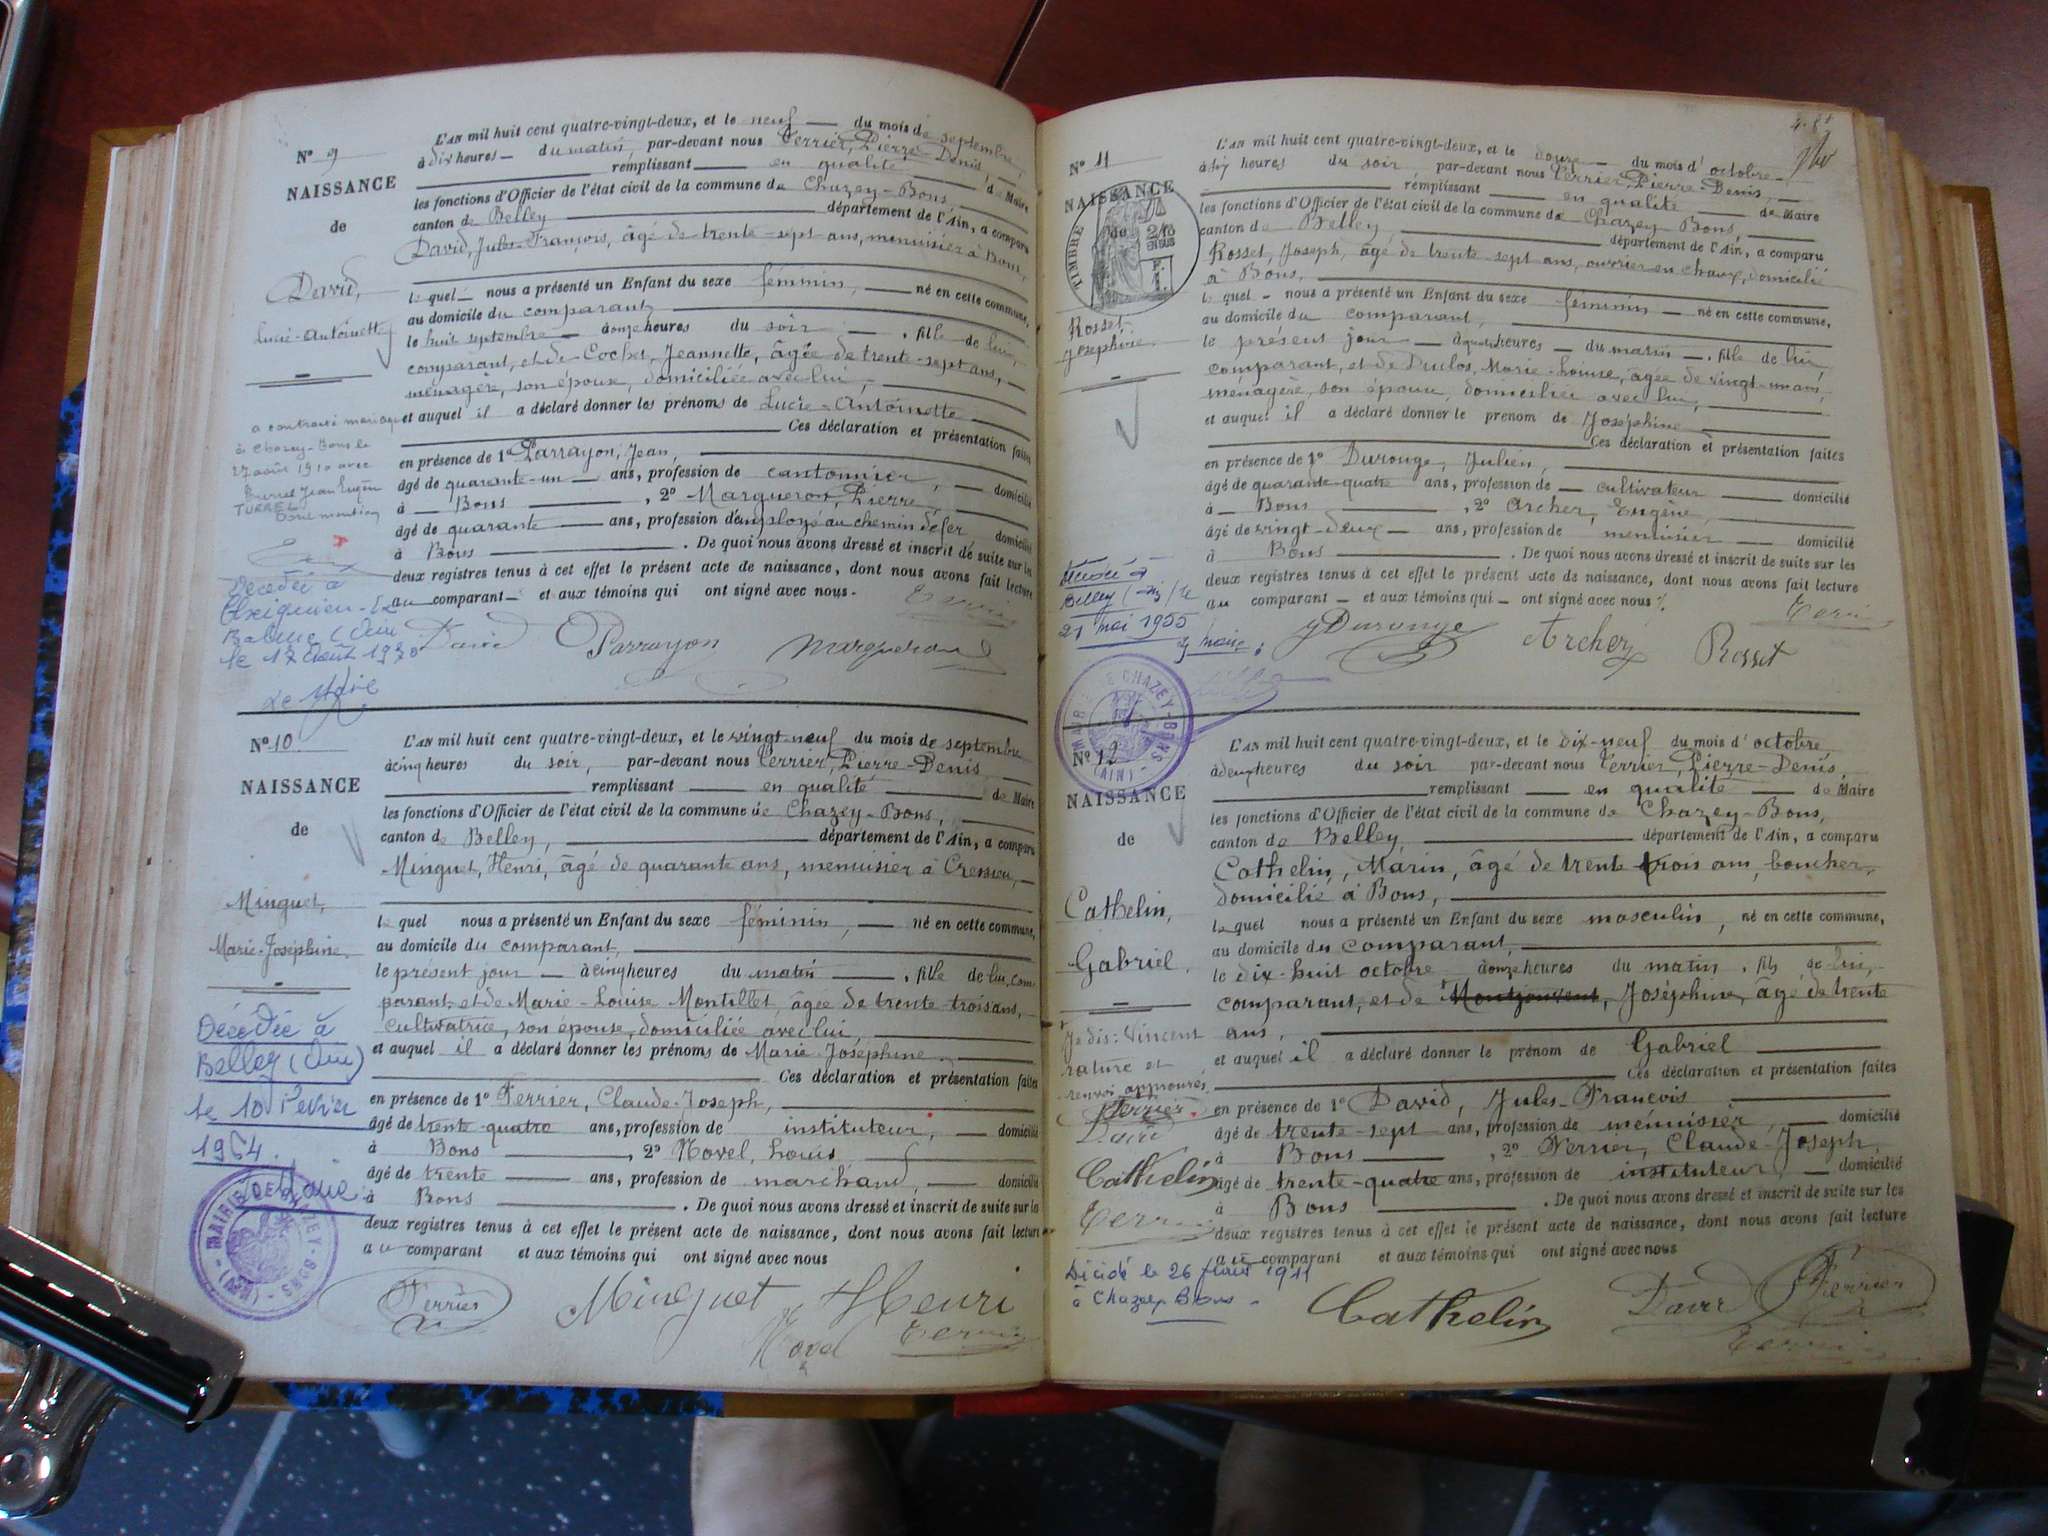 N° 9
NAISSANCE
de
David,
Lucie-Antoinette
a contracté mariage
à Chazey-Bons le
27 août 1910 avec
Jean Eugène
TURREL
Dont mention
Décédée à
le 17 Août 1970
Le Maire
L'AN mil huit cent quatre-vingt-deux, et le neuf du mois de septembre,
à dix heures du matin, par-devant nous Terrier, Pierre-Denis,
remplissant en qualité de Maire
les fonctions d'Officier de l'état civil de la commune de Chazey-Bons,
canton de Belley département de l'Ain, a comparu
David, Jules-François, âgé de trente-sept ans, menuisier à Bons,
le quel nous a présenté un Enfant du sexe féminin, né en cette commune,
au domicile du comparant,
le huit septembre à onze heures du soir, fille de lui,
comparant, et de Cochet, Jeannette, âgée de trente-sept ans,
ménagère, son épouse, domiciliée avec lui,
et auquel il a déclaré donner les prénoms de Lucie-Antoinette
Ces déclaration et présentation faites
en présence de 1° Parrayon, Jean,
âgé de quarante-un ans, profession de cantonnier, domicilié
à Bons, 2° Margueron, Pierre,
âgé de quarante ans, profession d'employé au chemin de fer domicilié
à Bons. De quoi nous avons dressé et inscrit de suite sur les
deux registres tenus à cet effet le présent acte de naissance, dont nous avons fait lecture
au comparant et aux témoins qui ont signé avec nous.
Terrier
David Parrayon Margueron
N° 10
NAISSANCE
de
Minguet,
Marie-Joséphine.
Décédée à
Belley (Ain)
le 10 Février
Le Maire
MAIRIE DE CHAZEY-BONS (AIN)
L'AN mil huit cent quatre-vingt-deux, et le vingt-neuf du mois de septembre
à cinq heures du soir, par-devant nous Terrier, Pierre-Denis,
remplissant en qualité de Maire
les fonctions d'Officier de l'état civil de la commune de Chazey-Bons,
canton de Belley, département de l'Ain, a comparu
Minguet, Henri, âgé de quarante ans, menuisier à Cressieu,
le quel nous a présenté un Enfant du sexe féminin, né en cette commune,
au domicile du comparant,
le présent jour à cinq heures du matin, fille de lui, com
parant, et de Marie-Louise Montillet, âgée de trente-trois ans,
cultivatrice, son épouse, domiciliée avec lui,
et auquel il a déclaré donner les prénoms de Marie-Joséphine
Ces déclaration et présentation faites
en présence de 1° Ferrier, Claude-Joseph,
âgé de trente-quatre ans, profession de instituteur, domicilié
à Bons, 2° Novel, Louis
âgé de trente ans, profession de marchand, domicilié
à Bons. De quoi nous avons dressé et inscrit de suite sur les
deux registres tenus à cet effet le présent acte de naissance, dont nous avons fait lecture
au comparant et aux témoins qui ont signé avec nous
Ferrier Minguet Henri
Novel Terrier
N° 11
NAISSANCE
de
TIMBRE
Rosset
Joséphine
Décédée à
Belley (Ain) le
21 mai 1955
Le Maire
MAIRIE DE CHAZEY-BONS (AIN)
L'AN mil huit cent quatre-vingt-deux, et le douze du mois d'octobre
à six heures du soir par-devant nous Terrier, Pierre-Denis,
remplissant en qualité de Maire
les fonctions d'Officier de l'état civil de la commune de Chazey-Bons,
canton de Belley, département de l'Ain, a comparu
Rosset, Joseph, âgé de trente-sept ans, ouvrier en chaux, domicilié
à Bons,
le quel nous a présenté un Enfant du sexe féminin né en cette commune,
au domicile du comparant,
le présent jour à quatre heures du matin, fille de lui
comparant, et de Duclos, Marie-Louise, âgée de vingt-un ans,
ménagère, son épouse, domiciliée avec lui,
et auquel il a déclaré donner le prénom de Joséphine
Ces déclaration et présentation faites
en présence de 1° Durouge, Julien,
âgé de quarante-quatre ans, profession de cultivateur domicilié
à Bons, 2° Archer, Eugène,
âgé de vingt-deux ans, profession de menuisier domicilié
à Bons. De quoi nous avons dressé et inscrit de suite sur les
deux registres tenus à cet effet le présent acte de naissance, dont nous avons fait lecture
au comparant et aux témoins qui ont signé avec nous
Terrier
J Durouge Archer Rosset
N° 12
NAISSANCE
de
Cathelin,
Gabriel.
Je dis: Vincent
rature et
renvoi approuvés
Ferrier
David
Cathelin
Terrier
Décédé le 26 février 1911
à Chazey-Bons
L'AN mil huit cent quatre-vingt-deux, et le dix-neuf du mois d'octobre,
à deux heures du soir par-devant nous Terrier, Pierre-Denis,
remplissant en qualité de Maire
les fonctions d'Officier de l'état civil de la commune de Chazey-Bons,
canton de Belley, département de l'Ain, a comparu
Cathelin, Marin, âgé de trente-trois ans, boucher,
domicilié à Bons,
le quel nous a présenté un Enfant du sexe masculin, né en cette commune,
au domicile du comparant,
le dix-huit octobre à onze heures du matin, fils de lui,
comparant, et de Montjouvent, Joséphine, âgé de trente
ans,
et auquel il a déclaré donner le prénom de Gabriel
Ces déclaration et présentation faites
en présence de 1° David, Jules-François
âgé de trente-sept ans, profession de menuisier, domicilié
à Bons, 2° Ferrier, Claude-Joseph,
âgé de trente-quatre ans, profession de instituteur, domicilié
à Bons. De quoi nous avons dressé et inscrit de suite sur les
deux registres tenus à cet effet le présent acte de naissance, dont nous avons fait lecture
au comparant et aux témoins qui ont signé avec nous
Cathelin David Ferrier
Terrier